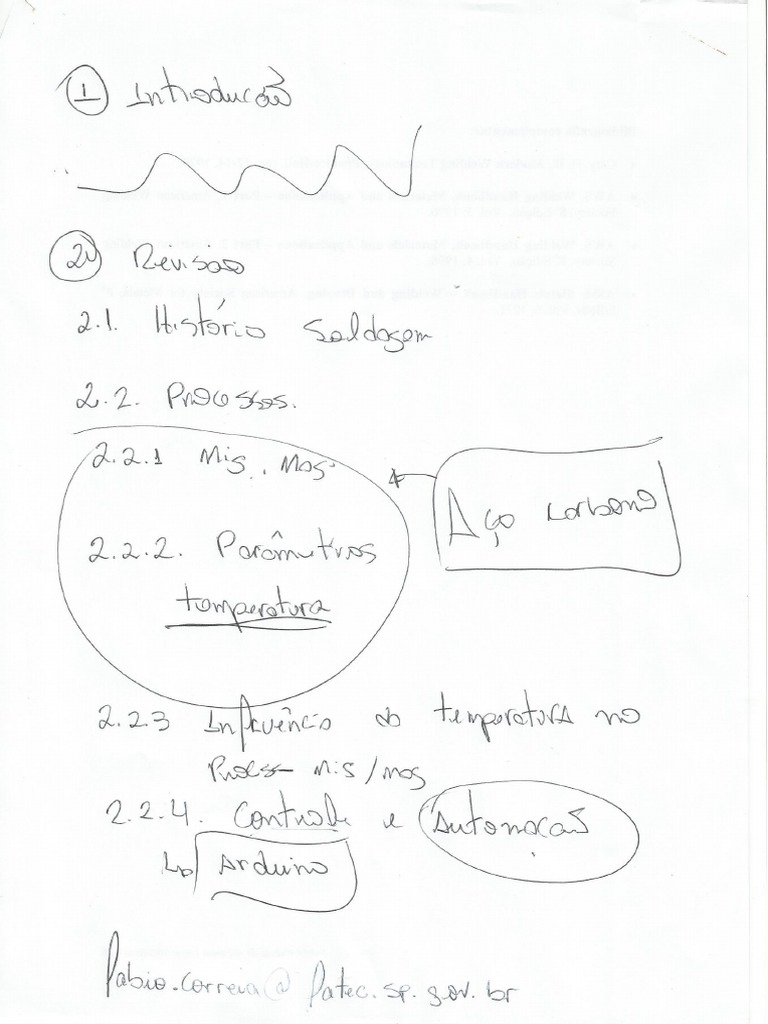 1 Introdução
2 Revisão
2.1. Histório Soldagem
2.2. Processos.
2.2.1 Mig. Mag
Aço carbono
2.2.2. Parâmetros
temperatura
2.2.3 Influência da temperatura no
Process Mig/mag
2.2.4. Controle e Automação
Arduino
fabio.correia@fatec.sp.gov.br